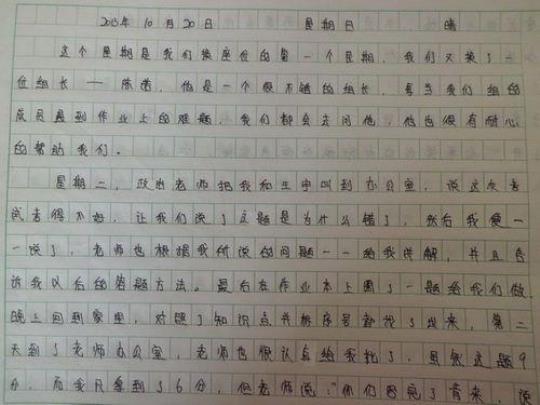 2013年 10月20日 星期日 晴
这个星期是我们换座位的第一个星期，我们又换了一
位组长——陈诺，他是一个很不错的组长，每当我们组的
成员遇到作业上的难题，我们都会去问他，他也很有耐心
的帮助我们。
星期二，政治老师把我和王宇叫到办公室，说这次考
试考得不好，让我们说了这题是为什么错了，然后我便一
一说了，老师也根据我所说的问题一一给我讲解，并且告
诉我以后的答题方法。最后在作业本上圈了一题给我们做，
晚上回到家里，对照了知识点并标序号都找了出来，第二
天到了老师办公室，老师也很认真给我批了，虽然这题9
分，而我只拿到了6分，但老师说：“你们要